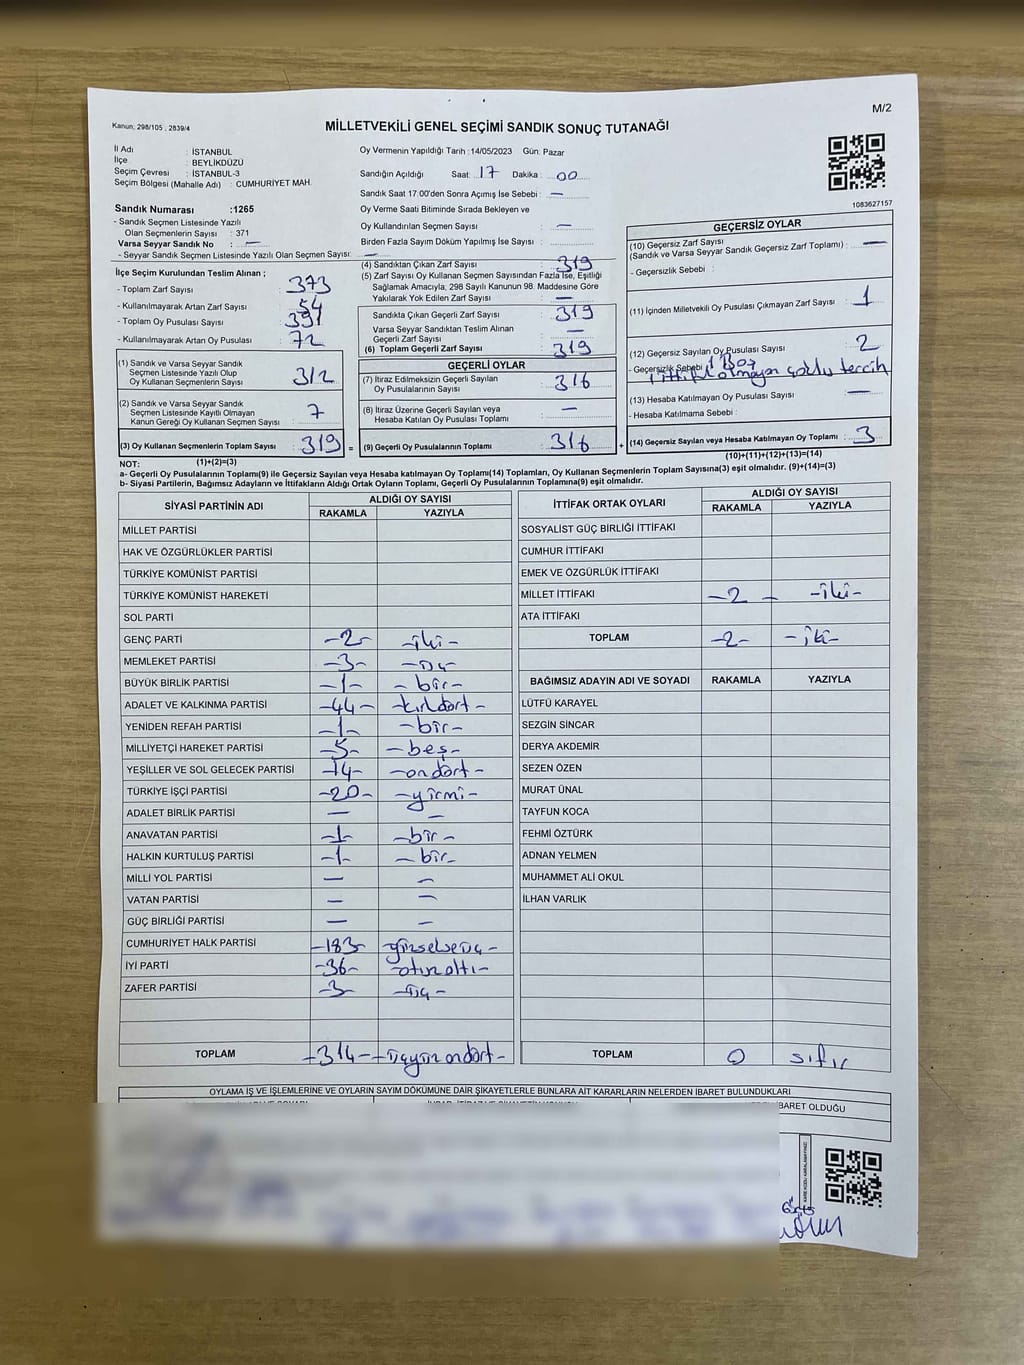 M/2
Kanun; 298/105 , 2839/4
MİLLETVEKİLİ GENEL SEÇİMİ SANDIK SONUÇ TUTANAĞI
İl Adı : İSTANBUL
İlçe : BEYLİKDÜZÜ
Seçim Çevresi : İSTANBUL-3
Seçim Bölgesi (Mahalle Adı) : CUMHURİYET MAH.
Sandık Numarası :1265
- Sandık Seçmen Listesinde Yazılı
Olan Seçmenlerin Sayısı : 371
Varsa Seyyar Sandık No : —
- Seyyar Sandık Seçmen Listesinde Yazılı Olan Seçmen Sayısı: —
Oy Vermenin Yapıldığı Tarih :14/05/2023 Gün: Pazar
Sandığın Açıldığı Saat: 17 Dakika : 00
Sandık Saat 17:00'den Sonra Açımış İse Sebebi : —
Oy Verme Saati Bitiminde Sırada Bekleyen ve
Oy Kullandırılan Seçmen Sayısı : —
Birden Fazla Sayım Döküm Yapılmış İse Sayısı :
1083627157
İlçe Seçim Kurulundan Teslim Alınan ;
- Toplam Zarf Sayısı : 373
- Kullanılmayarak Artan Zarf Sayısı : 54
- Toplam Oy Pusulası Sayısı : 391
- Kullanılmayarak Artan Oy Pusulası : 72
(1) Sandık ve Varsa Seyyar Sandık
Seçmen Listesinde Yazılı Olup
Oy Kullanan Seçmenlerin Sayısı : 312
(2) Sandık ve Varsa Seyyar Sandık
Seçmen Listesinde Kayıtlı Olmayan
Kanun Gereği Oy Kullanan Seçmen Sayısı : 7
(3) Oy Kullanan Seçmenlerin Toplam Sayısı : 319 =
(1)+(2)=(3)
(4) Sandıktan Çıkan Zarf Sayısı : 319
(5) Zarf Sayısı Oy Kullanan Seçmen Sayısından Fazla İse, Eşitliği
Sağlamak Amacıyla, 298 Sayılı Kanunun 98. Maddesine Göre
Yakılarak Yok Edilen Zarf Sayısı : —
Sandıkta Çıkan Geçerli Zarf Sayısı : 319
Varsa Seyyar Sandıktan Teslim Alınan
Geçerli Zarf Sayısı : —
(6) Toplam Geçerli Zarf Sayısı : 319
GEÇERLİ OYLAR
(7) İtiraz Edilmeksizin Geçerli Sayılan
Oy Pusulalarının Sayısı : 316
(8) İtiraz Üzerine Geçerli Sayılan veya
Hesaba Katılan Oy Pusulası Toplamı : —
(9) Geçerli Oy Pusulalarının Toplamı : 316 +
GEÇERSİZ OYLAR
(10) Geçersiz Zarf Sayısı
(Sandık ve Varsa Seyyar Sandık Geçersiz Zarf Toplamı) : —
- Geçersizlik Sebebi :
(11) İçinden Milletvekili Oy Pusulası Çıkmayan Zarf Sayısı : 1
(12) Geçersiz Sayılan Oy Pusulası Sayısı : 2
- Geçersizlik Sebebi : 1 Boş
1 ittifak olmayan çoklu tercih
(13) Hesaba Katılmayan Oy Pusulası Sayısı : —
- Hesaba Katılmama Sebebi :
(14) Geçersiz Sayılan veya Hesaba Katılmayan Oy Toplamı : 3
(10)+(11)+(12)+(13)=(14)
NOT:
a- Geçerli Oy Pusulalarının Toplamı(9) ile Geçersiz Sayılan veya Hesaba katılmayan Oy Toplamı(14) Toplamları, Oy Kullanan Seçmenlerin Toplam Sayısına(3) eşit olmalıdır. (9)+(14)=(3)
b- Siyasi Partilerin, Bağımsız Adayların ve İttifakların Aldığı Ortak Oyların Toplamı, Geçerli Oy Pusulalarının Toplamına(9) eşit olmalıdır.
SİYASİ PARTİNİN ADI ALDIĞI OY SAYISI
RAKAMLA YAZIYLA
MİLLET PARTİSİ
HAK VE ÖZGÜRLÜKLER PARTİSİ
TÜRKİYE KOMÜNİST PARTİSİ
TÜRKİYE KOMÜNİST HAREKETİ
SOL PARTİ
GENÇ PARTİ -2- -iki-
MEMLEKET PARTİSİ -3- -üç
BÜYÜK BİRLİK PARTİSİ -1- -bir-
ADALET VE KALKINMA PARTİSİ -44- -kırkdört-
YENİDEN REFAH PARTİSİ -1- -bir-
MİLLİYETÇİ HAREKET PARTİSİ -5- -beş-
YEŞİLLER VE SOL GELECEK PARTİSİ -14- -ondört-
TÜRKİYE İŞÇİ PARTİSİ -20- -yirmi-
ADALET BİRLİK PARTİSİ — —
ANAVATAN PARTİSİ -1- -bir-
HALKIN KURTULUŞ PARTİSİ -1- -bir-
MİLLİ YOL PARTİSİ — —
VATAN PARTİSİ — —
GÜÇ BİRLİĞİ PARTİSİ — —
CUMHURİYET HALK PARTİSİ -183- -yüzseksenüç-
İYİ PARTİ -36- -otuzaltı-
ZAFER PARTİSİ -3- -üç-
TOPLAM -314- -üçyüzondört-
İTTİFAK ORTAK OYLARI ALDIĞI OY SAYISI
RAKAMLA YAZIYLA
SOSYALİST GÜÇ BİRLİĞİ İTTİFAKI
CUMHUR İTTİFAKI
EMEK VE ÖZGÜRLÜK İTTİFAKI
MİLLET İTTİFAKI -2- -iki-
ATA İTTİFAKI
TOPLAM -2- -iki-
BAĞIMSIZ ADAYIN ADI VE SOYADI RAKAMLA YAZIYLA
LÜTFÜ KARAYEL
SEZGİN SİNCAR
DERYA AKDEMİR
SEZEN ÖZEN
MURAT ÜNAL
TAYFUN KOCA
FEHMİ ÖZTÜRK
ADNAN YELMEN
MUHAMMET ALİ OKUL
İLHAN VARLIK
TOPLAM 0 sıfır
OYLAMA İŞ VE İŞLEMLERİNE VE OYLARIN SAYIM DÖKÜMÜNE DAİR ŞİKAYETLERLE BUNLARA AİT KARARLARIN NELERDEN İBARET BULUNDUKLARI
İBARET OLDUĞU